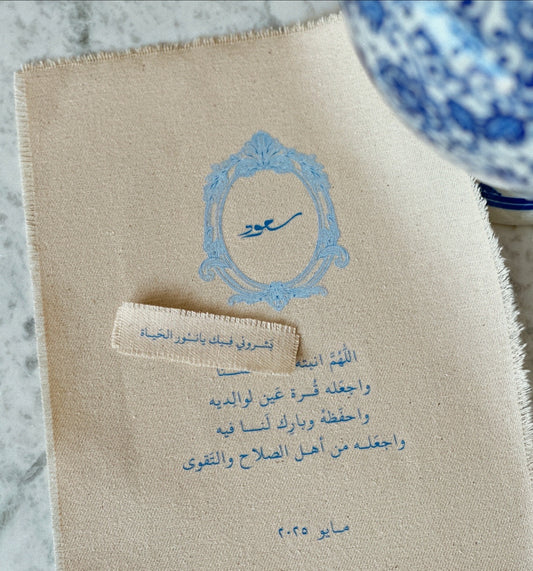 سعود
بَشروني فيك يانور الحَياة
اللّهُمَّ انبته
واجعَله قُرة عَين لوالِديه
واحفَظهُ وبارِك لَنا فيه
واجعَله من أهل الصِلاح والتَقوى
مايو ٢٠٢٥